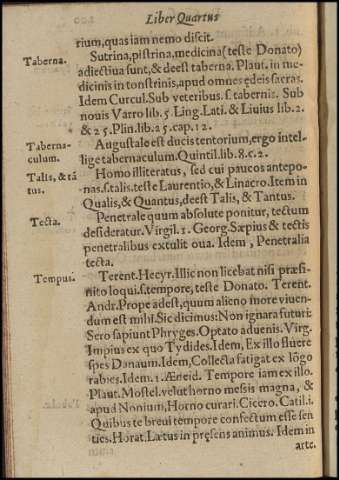 Liber Quartus
rium, quas iam nemo discit.
Taberna.
Sutrina, pistrina, medicina (teste Donato)
adiectiua sunt, & deest taberna. Plaut. in me-
dicinis in tonstrinis, apud omnes ędeis sacras.
Idem Curcul. Sub veteribus. s. tabernis. Sub
nouis Varro lib. 5. Ling. Lati. & Liuius lib. 2.
& 25. Plin. lib. 25. cap. 12.
Taberna-
culum.
Augustale est ducis tentorium, ergo intel-
lige tabernaculum. Quintil. lib. 8. c. 2.
Talis, & tā
tus.
Homo illiteratus, sed cui paucos antepo-
nas. s. talis. teste Laurentio, & Linacro. Item in
Qualis, & Quantus, deest Talis, & Tantus.
Tecta.
Penetrale quum absolute ponitur, tectum
desideratur. Virgil. 1. Georg. Sæpius & tectis
penetralibus extulit oua. Idem, Penetralia
tecta.
Tempus.
Terent. Hecyr. Illic non licebat nisi præfi-
nito loqui. s. tempore, teste Donato. Terent.
Andr. Prope adest, quum alieno more viuen-
dum est mihi. Sic dicimus: Non ignara futuri:
Sero sapiunt Phryges. Optato aduenis. Virg.
Impius ex quo Tydides. Idem, Ex illo fluere
spes Danaum. Idem, Collecta fatigat ex lōgo
rabies. Idem. 1. Æneid. Tempore iam ex illo.
Plaut. Mostel. velut horno messis magna, &
apud Nonium, Horno curari. Cicero. Catil. i.
Quibus te breui tempore confectum esse sen
ties. Horat. Lætus in pręsens animus. Idem in
arte.